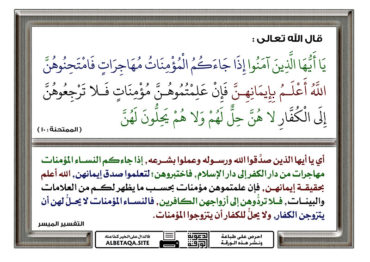 قال الله تعالى :
يَا أَيُّهَا الَّذِينَ آمَنُوا إِذَا جَاءَكُمُ الْمُؤْمِنَاتُ مُهَاجِرَاتٍ فَامْتَحِنُوهُنَّ
اللَّهُ أَعْلَمُ بِإِيمَانِهِنَّ فَإِنْ عَلِمْتُمُوهُنَّ مُؤْمِنَاتٍ فَلَا تَرْجِعُوهُنَّ
إِلَى الْكُفَّارِ لَا هُنَّ حِلٌّ لَهُمْ وَلَا هُمْ يَحِلُّونَ لَهُنَّ
( الممتحنة : ١٠ )
أي يا أيها الذين صدَّقوا الله ورسوله وعملوا بشرعه, إذا جاءكم النساء المؤمنات
مهاجرات من دار الكفر إلى دار الإسلام, فاختبروهن؛ لتعلموا صدق إيمانهن, الله أعلم
بحقيقة إيمانهن, فإن علمتموهن مؤمنات بحسب ما يظهر لكم من العلامات
والبينات, فلا تردُّوهن إلى أزواجهن الكافرين, فالنساء المؤمنات لا يحلُّ لهن أن
يتزوجن الكفار, ولا يحلُّ للكفار أن يتزوجوا المؤمنات.
التفسير الميسر
احرص على طباعة
ونشر هذه الورقة
ALBETAQA.SITE